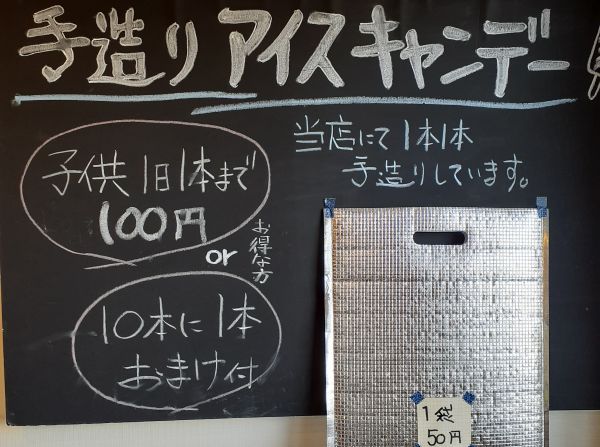 手造りアイスキャンデー
当店にて1本1本
手造りしています。
子供1日1本まで
100円
or
お得な方
10本に1本
おまけ付
1袋
50円